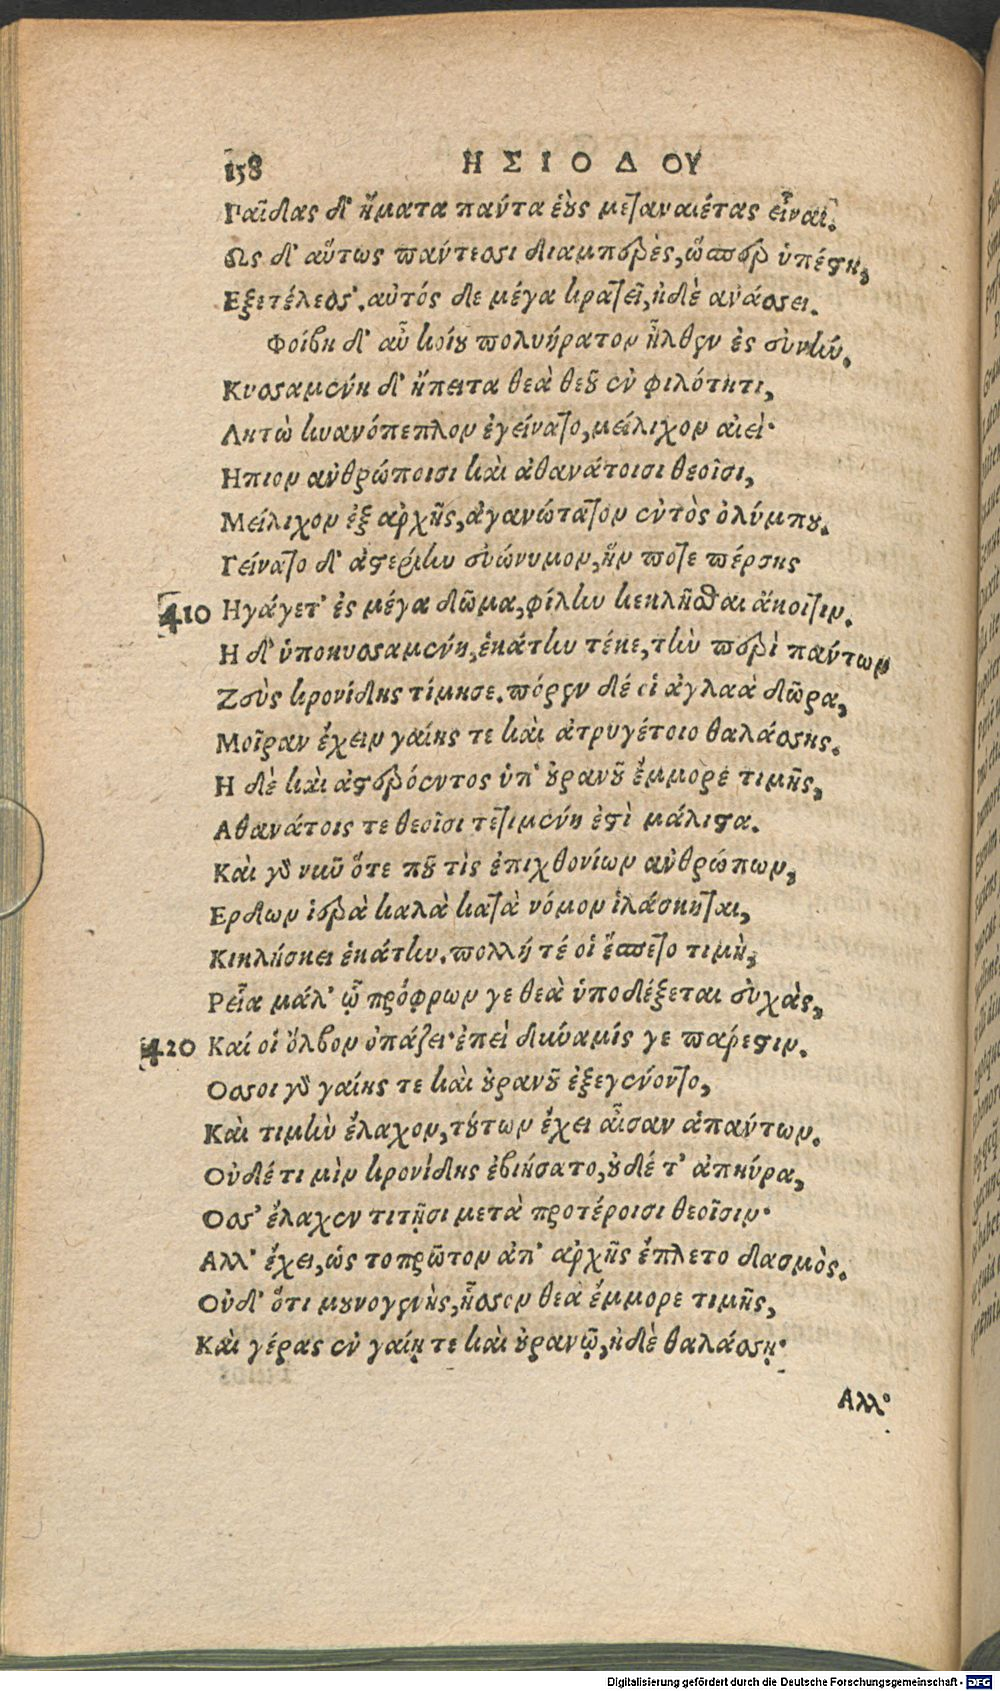 158 ΗΣΙΟΔΟΥ
Παῖδας δ' ἤματα πάντα ἑοὺς μεταναιέτας εἶναι.
Ως δ' αὔτως πάντεσσι διαμπερὲς, ὥσπερ ὑπέστη,
Εξετέλεσσ'. αὐτός δε μέγα κρατεῖ, ἠδὲ ἀνάσσει.
Φοίβη δ' αὖ Κοίου πολυήρατον ἦλθεν ἐς εὐνήν.
Κυσσαμένη δ' ἤπειτα θεὰ θεοῦ ἐν φιλότητι,
Λητὼ κυανόπεπλον ἐγείνατο, μείλιχον αἰεὶ·
Ηπιον ἀνθρώποισι καὶ ἀθανάτοισι θεοῖσι,
Μείλιχον ἐξ ἀρχῆς, ἀγανώτατον ἐντὸς ὀλύμπου.
Γείνατο δ' ἀστερίην εὐώνυμον, ἥν ποτε πέρσης
410 Ηγάγετ' ἐς μέγα δῶμα, φίλην κεκλῆσθαι ἄκοιτιν.
Η δ' ὑποκυσσαμένη, ἑκάτην τέκε, τὴν περὶ πάντων
Ζεὺς κρονίδης τίμησε. πόρεν δέ οἱ ἀγλαὰ δῶρα,
Μοῖραν ἔχειν γαίης τε καὶ ἀτρυγέτοιο θαλάσσης.
Η δὲ καὶ ἀστερόεντος ὑπ' οὐρανοῦ ἔμμορε τιμῆς,
Αθανάτοις τε θεοῖσι τετιμένη ἐστὶ μάλιστα.
Καὶ γὰρ νῦν ὅτε πού τὶς ἐπιχθονίων ἀνθρώπων,
Ερδων ἱερὰ καλὰ κατὰ νόμον ἱλάσκηται,
Κικλήσκει ἑκάτην. πολλή τέ οἱ ἕσπετο τιμὴ,
Ρεῖα μάλ' ᾧ πρόφρων γε θεὰ ὑποδέξεται εὐχὰς,
420 Καί οἱ ὄλβον ὀπάζει· ἐπεὶ δύναμίς γε πάρεστιν.
Οσσοι γὰρ γαίης τε καὶ οὐρανοῦ ἐξεγένοντο,
Καὶ τιμὴν ἔλαχον, τούτων ἔχει αἶσαν ἁπάντων.
Οὐδέ τι μὶν κρονίδης ἐβιήσατο, οὐδέ τ' ἀπηύρα,
Οσσ' ἔλαχεν τιτῆσι μετὰ προτέροισι θεοῖσιν·
Αλλ' ἔχει, ὡς τοπρῶτον ἀπ' ἀρχῆς ἔπλετο δασμὸς.
Οὐδ' ὅτι μουνογενὴς, ἧσσον θεὰ ἔμμορε τιμῆς,
Καὶ γέρας ἐν γαίῃ τε καὶ οὐρανῷ, ἠδὲ θαλάσσῃ·
Αλλ'
Digitalisierung gefördert durch die Deutsche Forschungsgemeinschaft - DFG